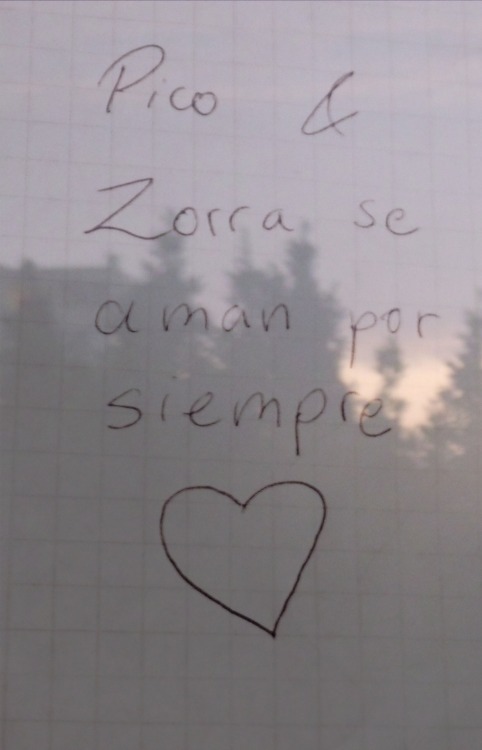 Pico &
Zorra se
aman por
siempre